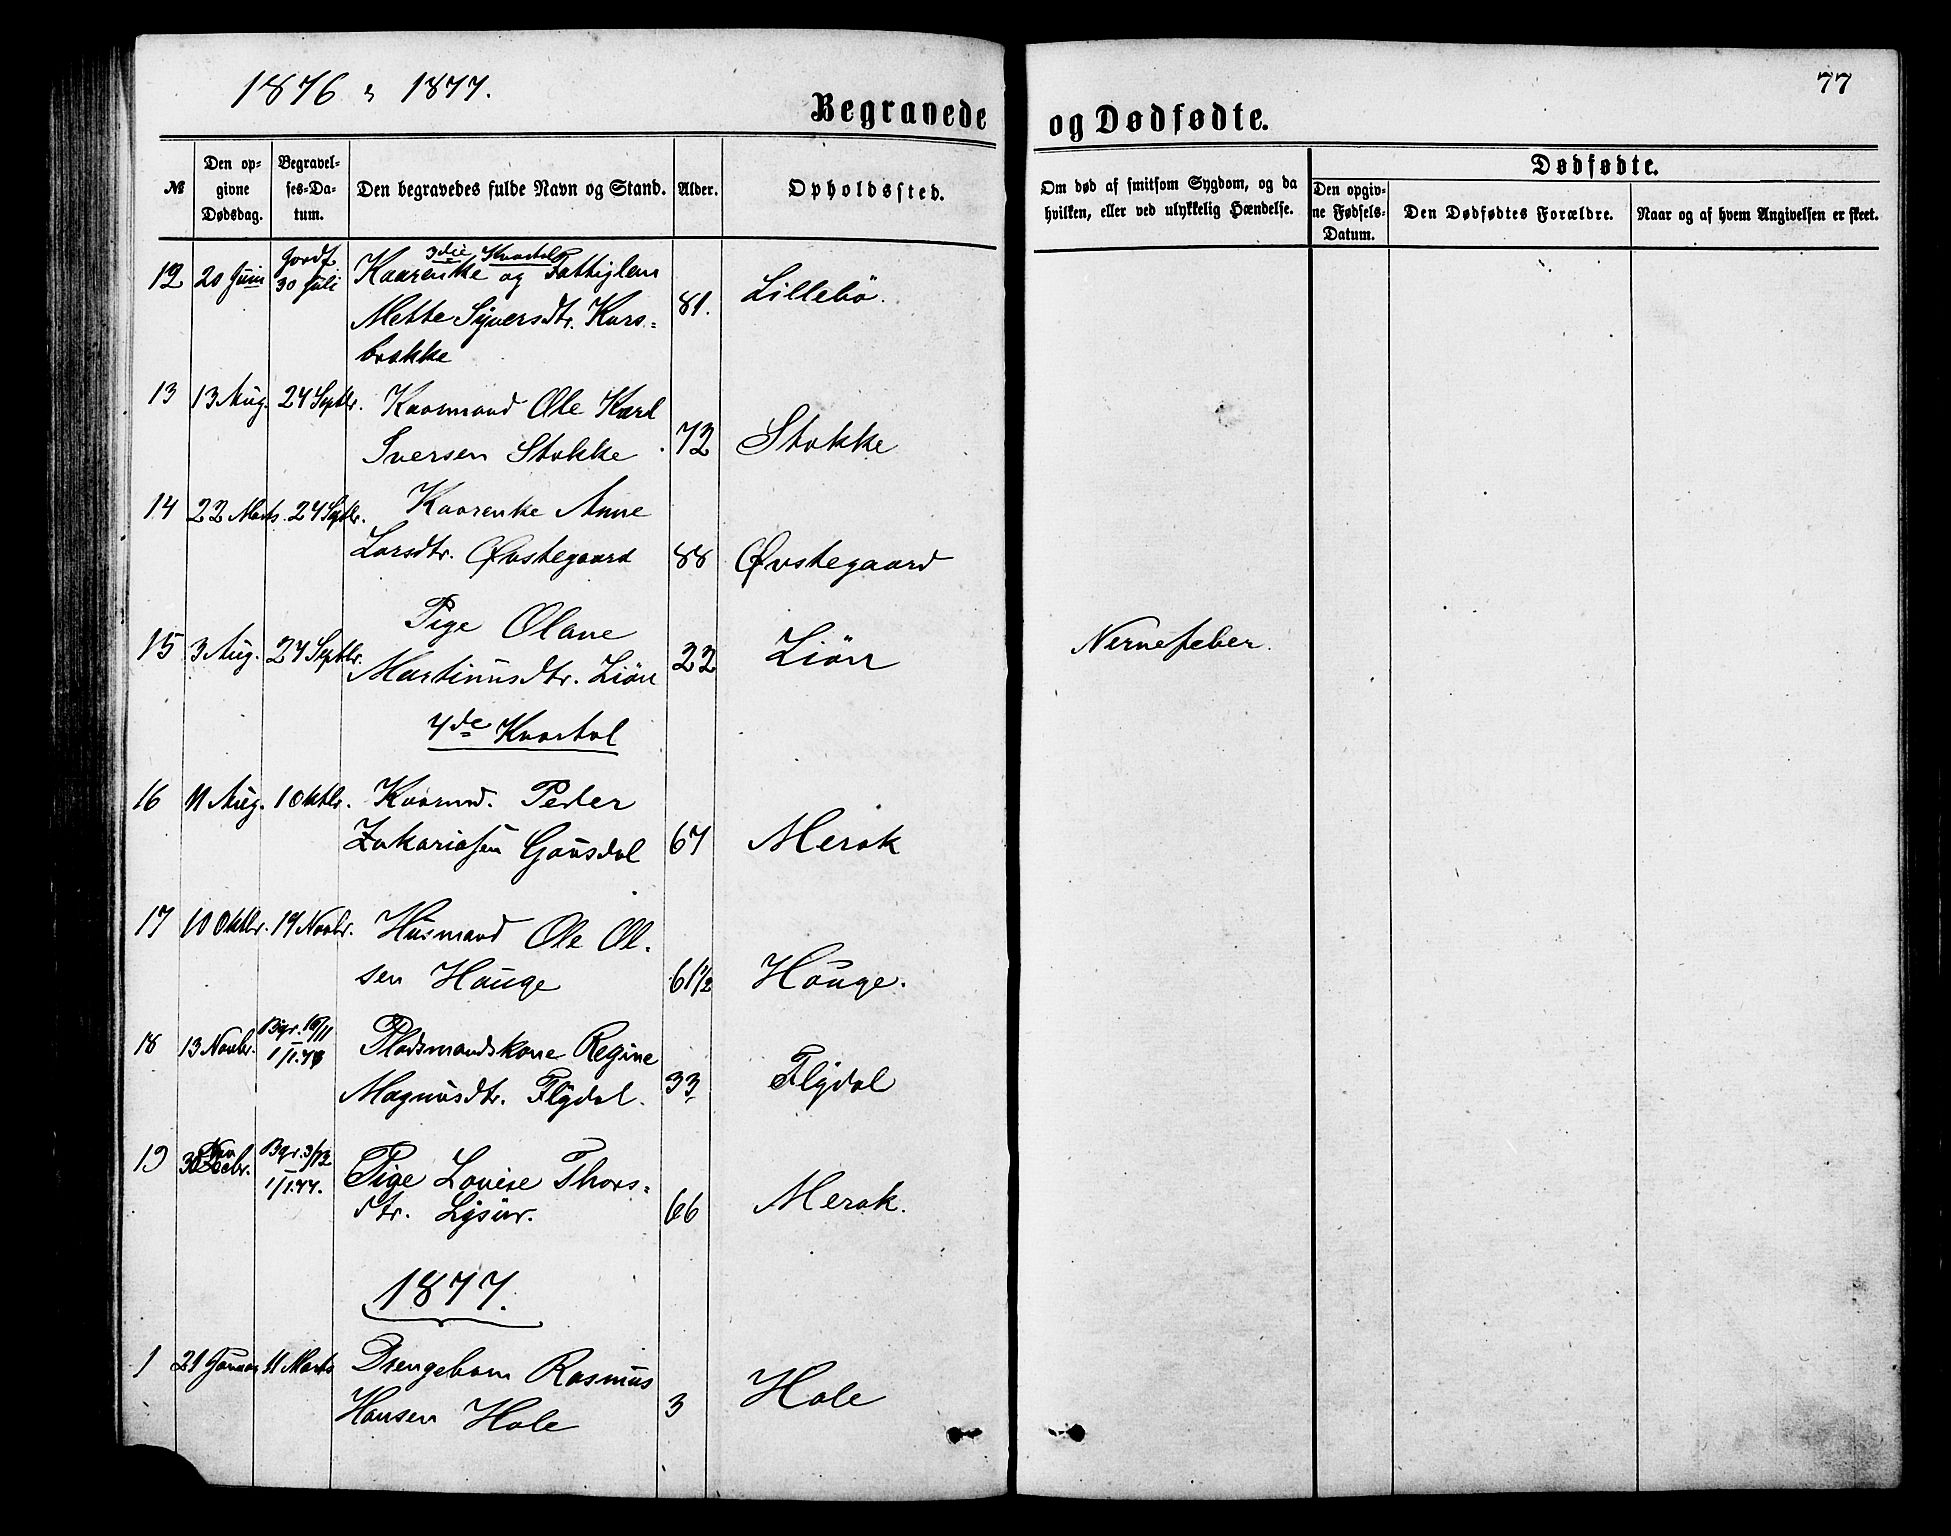 1876 & 1877.
77
Begravede og Dødfødte.
№
Den op-
givne
Dødsdag.
Begravel-
ses-Da-
tum.
Den begravedes fulde Navn og Stand.
Alder.
Opholdssted.
Om død af smitsom Sygdom, og da
hvilken, eller ved ulykkelig Hændelse.
Dødfødte.
Den opgiv-
ne Fødsels-
Datum.
Den Dødfødtes Forældre.
Naar og af hvem Angivelsen er skeet.
3die Kvartal
12 20 Juni Jordf. 30 Juli Kaarenke og Fattiglem
Mette Sjversdtr. Kors- 81. Lillebö.
brekke
13 13 Aug. 24 Septbr. Kaarmand Ole Karl
Iversen Stokke 72 Stokke
14 22 Marts. 24 Septbr. Kaarenke Anne
Larsdtr. Øvstegaard 88 Øvstegaard
15 3 Aug. 24 Septbr. Pige Olane
Martinusdtr. Liön 22 Liön Nervefeber.
4de Kvartal
16 11 Aug. 1 Oktbr. Kaarmd. Peder
Zakariasen Gausdal 67 Merok
17 10 Oktbr. 19 Novbr. Husmand Ole Ol-
sen Hauge 61½ Hauge.
18 13 Novbr. Bgr. 16/11 1/1.77 Pladsmandskone Regine
Magnusdtr. Flydal. 33. Flydal
19 30 Nov Bgr. 3/12 1/1.77. Pige Lovise Thors-
dtr. Lysur. 66 Merok.
1877.
1 21 Januar 11 Marts Drengebarn Rasmus
Hansen Hole 3 Hole